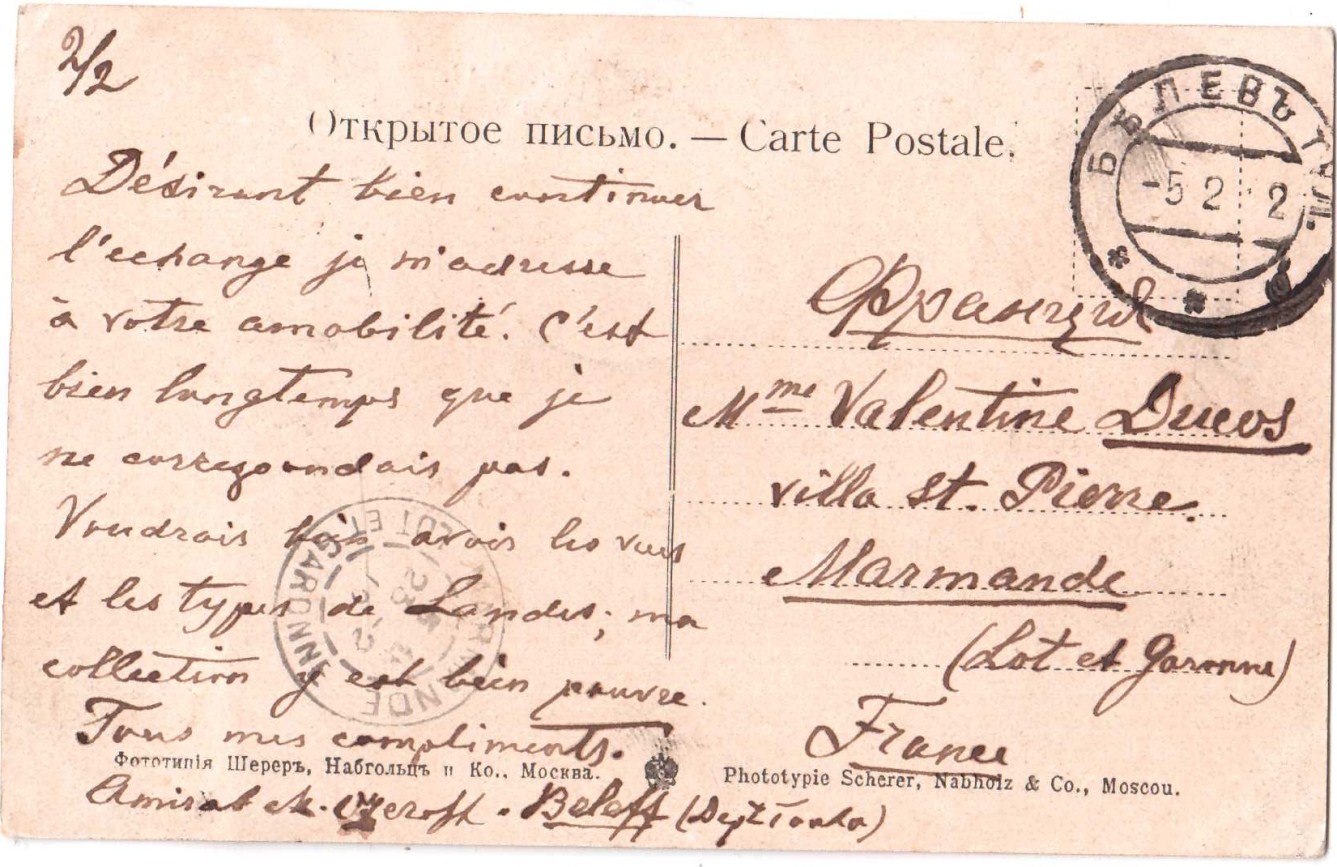 2/2
Открытое письмо. — Carte Postale.
БѢЛЕВЪ ТУЛ.
-5 2 12
Désirant bien continuer
l'echange je m'adresse
à votre amabilité. C'est
bien longtemps que je
ne correspondais pas.
Voudrais bien avoir les vues
et les types de Landes; ma
collection y est bien pauvre.
Tous mes compliments.
Amiral M.
Beleff (Dept Toula)
Франція
Mme Valentine Ducos
villa St. Pierre.
Marmande
(Lot et Garonne)
France
MARMANDE
LOT ET GARONNE
Фототипія Шереръ, Набгольцъ и Ко., Москва.
Phototypie Scherer, Nabholz & Co., Moscou.